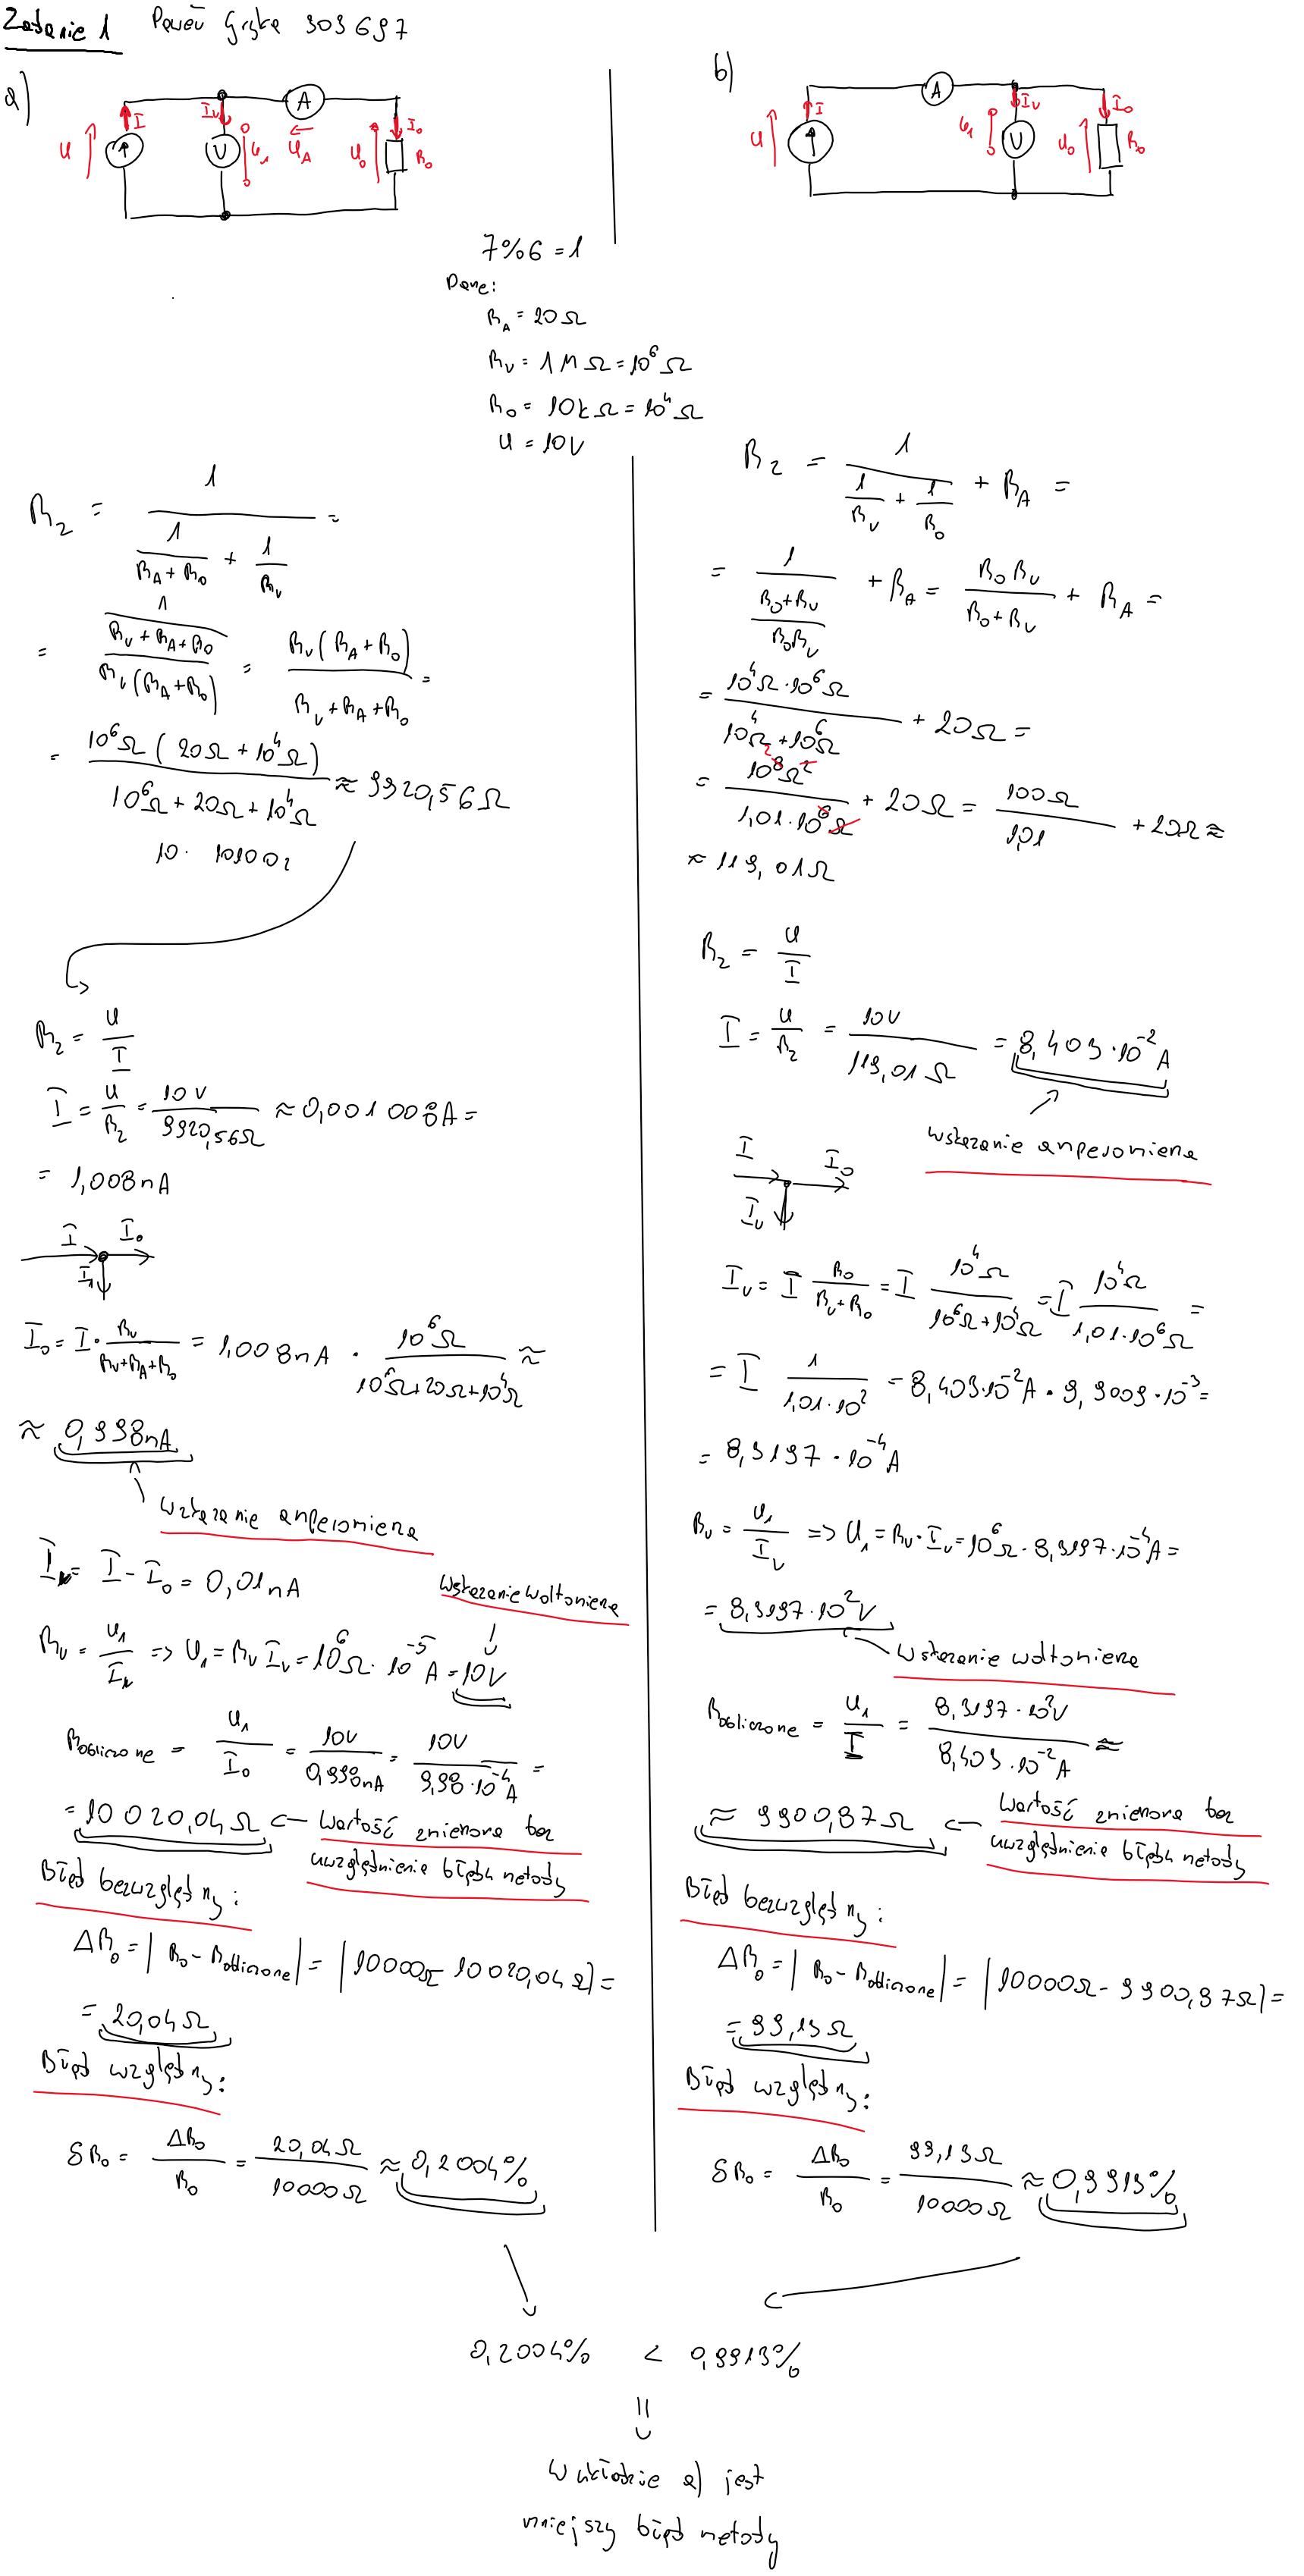 Zadanie 1 Paweł 303697
a)
I
I_V
A
I_0
U
V
U_1
U_A
U_0
R_0
b)
A
I
I_V
I_0
U
U_1
V
U_0
R_0
7%6 = 1
Dane:
R_A = 20Ω
R_V = 1MΩ = 10^6 Ω
R_0 = 10kΩ = 10^4 Ω
U = 10V
R_Z = 1/(1/(R_A+R_0) + 1/R_V) =
= 1/((R_V+R_A+R_0)/(R_V(R_A+R_0))) = R_V(R_A+R_0)/(R_V+R_A+R_0) =
= 10^6Ω(20Ω+10^4Ω)/(10^6Ω+20Ω+10^4Ω) ≈ 9920,56Ω
R_Z = U/I
I = U/R_Z = 10V/9920,56Ω ≈ 0,001008A =
= 1,008mA
I I_0
I_1
I_0 = I · R_V/(R_V+R_A+R_0) = 1,008mA · 10^6Ω/(10^6Ω+20Ω+10^4Ω) ≈
≈ 0,998mA
Wskazanie amperomierza
I_V = I - I_0 = 0,01mA
Wskazanie woltomierza
R_V = U_1/I_V => U_1 = R_V I_V = 10^6Ω · 10^-5 A = 10V
R_obliczone = U_1/I_0 = 10V/0,998mA = 10V/(9,98·10^-4 A) =
= 10 020,04Ω <- Wartość zmierzona bez
uwzględnienia błędu metody
Błąd bezwzględny:
ΔR_0 = |R_0 - R_obliczone| = |10000Ω - 10020,04Ω| =
= 20,04Ω
Błąd względny:
δR_0 = ΔR_0/R_0 = 20,04Ω/10000Ω ≈ 0,2004%
R_Z = 1/(1/R_V + 1/R_0) + R_A =
= 1/((R_0+R_V)/(R_0R_V)) + R_A = R_0R_V/(R_0+R_V) + R_A =
= 10^4Ω·10^6Ω/(10^4Ω+10^6Ω) + 20Ω =
= 10^8Ω^2/(1,01·10^6Ω) + 20Ω = 100Ω/1,01 + 20Ω ≈
≈ 119,01Ω
R_Z = U/I
I = U/R_Z = 10V/119,01Ω = 8,403·10^-2 A
Wskazanie amperomierza
I I_0
I_V
I_V = I R_0/(R_V+R_0) = I 10^4Ω/(10^6Ω+10^4Ω) = I 10^4Ω/(1,01·10^6Ω) =
= I 1/(1,01·10^2) = 8,403·10^-2 A · 9,9009·10^-3 =
= 8,3197·10^-4 A
R_V = U_1/I_V => U_1 = R_V·I_V = 10^6Ω · 8,3197·10^-4 A =
= 8,3197·10^2 V
Wskazanie woltomierza
R_obliczone = U_1/I = 8,3197·10^2V/(8,403·10^-2 A) ≈
≈ 9900,87Ω <- Wartość zmierzona bez
uwzględnienia błędu metody
Błąd bezwzględny:
ΔR_0 = |R_0 - R_obliczone| = |10000Ω - 9900,87Ω| =
= 99,13Ω
Błąd względny:
δR_0 = ΔR_0/R_0 = 99,13Ω/10000Ω ≈ 0,9913%
0,2004% < 0,9913%
W układzie a) jest
mniejszy błąd metody